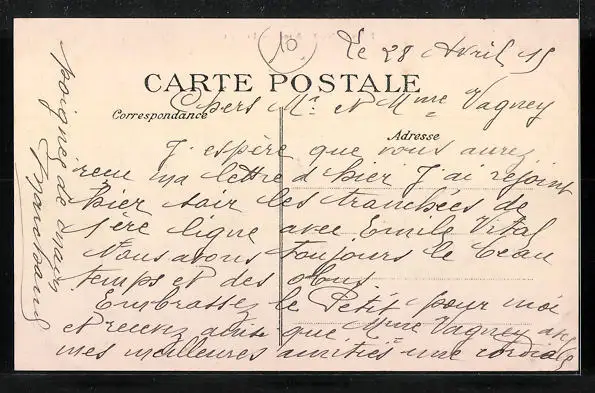 10
Le 28 Avril 15
CARTE POSTALE
Chers Mr et Mme Vagney
Correspondance
Adresse
J'espère que vous aurez
reçu ma lettre d'hier J'ai rejoint
hier soir les tranchées de
1ère ligne avec Emile Vital
Nous avons toujours le beau
temps et des obus.
Embrassez le Petit pour moi
et recevez ainsi que Mme Vagney avec
mes meilleures amitiés une cordiale
poignée de main